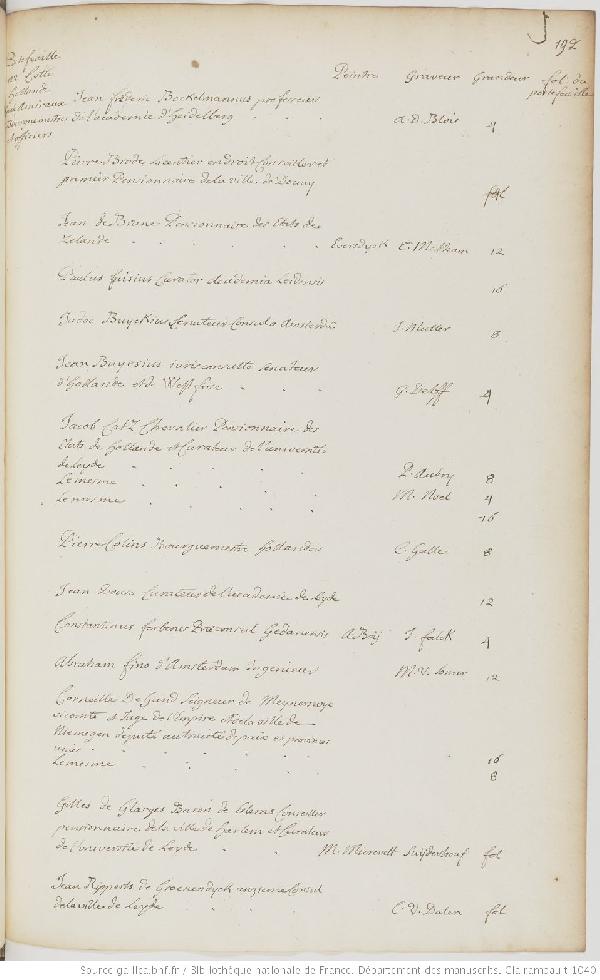 192
Portefeuille
Hollande
officiers
Peintre Graveur Grandeur fol. du portefeuille
Jean frederic Bockelmannus professeur
de l'academie d'Heidelberg A. d. Blois 4
Pierre Brodes licentier en droit Conseiller et
premier Pensionnaire de la ville de Douay fol
Jean de Brune Pensionnaire des Etats de
Zelande Eversdyck C. Meskham 12
Paulus frisius Curator Academia Leidensis 16
Judoc Buyckius Senateur Consul Amsterda J. Muller 8
Jean Buyesius iurisconsulte Senateur
d'Hollande et de West frise G. Delff 4
Jacob Catz Chevalier Pensionnaire des
Etats de hollande et Curateur de l'université
de Leyde P. Aubry 8
Le mesme M. Noel 4
Le mesme 16
Pierre Colins Bourguemestre hollandois C. Galle 8
Jean Dousa Curateur de l'academie de Leyde 12
Constantinus ferberus Proconsul Gedanensis A Boij J. falck 4
Abraham fino d'Amsterdam Ingenieur M. V. Somer 12
Corneille De Gand Seigneur de Meynerswye
vicomte et Juge de l'Empire et de la ville de
Niemegen deputé au traité de paix
16
Le mesme 8
Gilles de Glarges Baron de Elems Conseiller
pensionnaire de la ville de harlem et Curateur
de l'université de Leyde M. Mierevelt Suyderhoef fol
Jean Ripperts de Groenendyck Consul
de la ville de Leyde C. V. Dalen fol
Source gallica.bnf.fr / Bibliothèque nationale de France. Département des manuscrits. Clairambault 1040